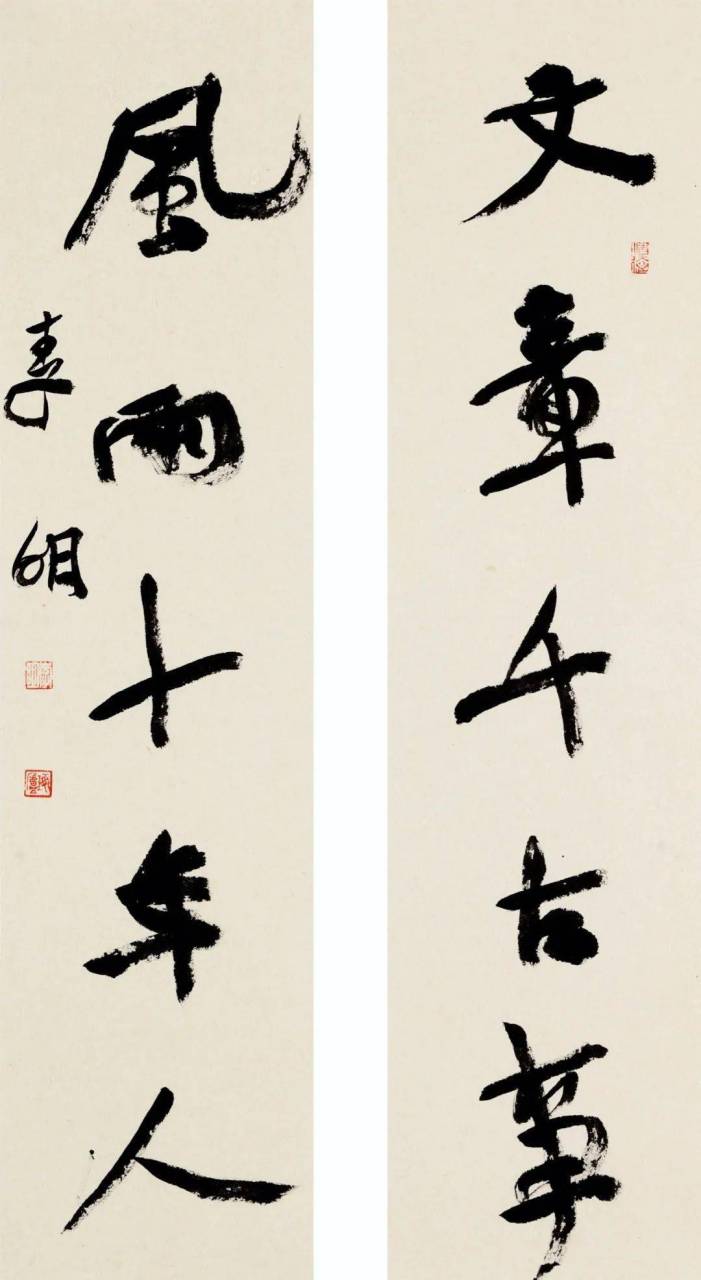 文章千古事
風雨十年人
明